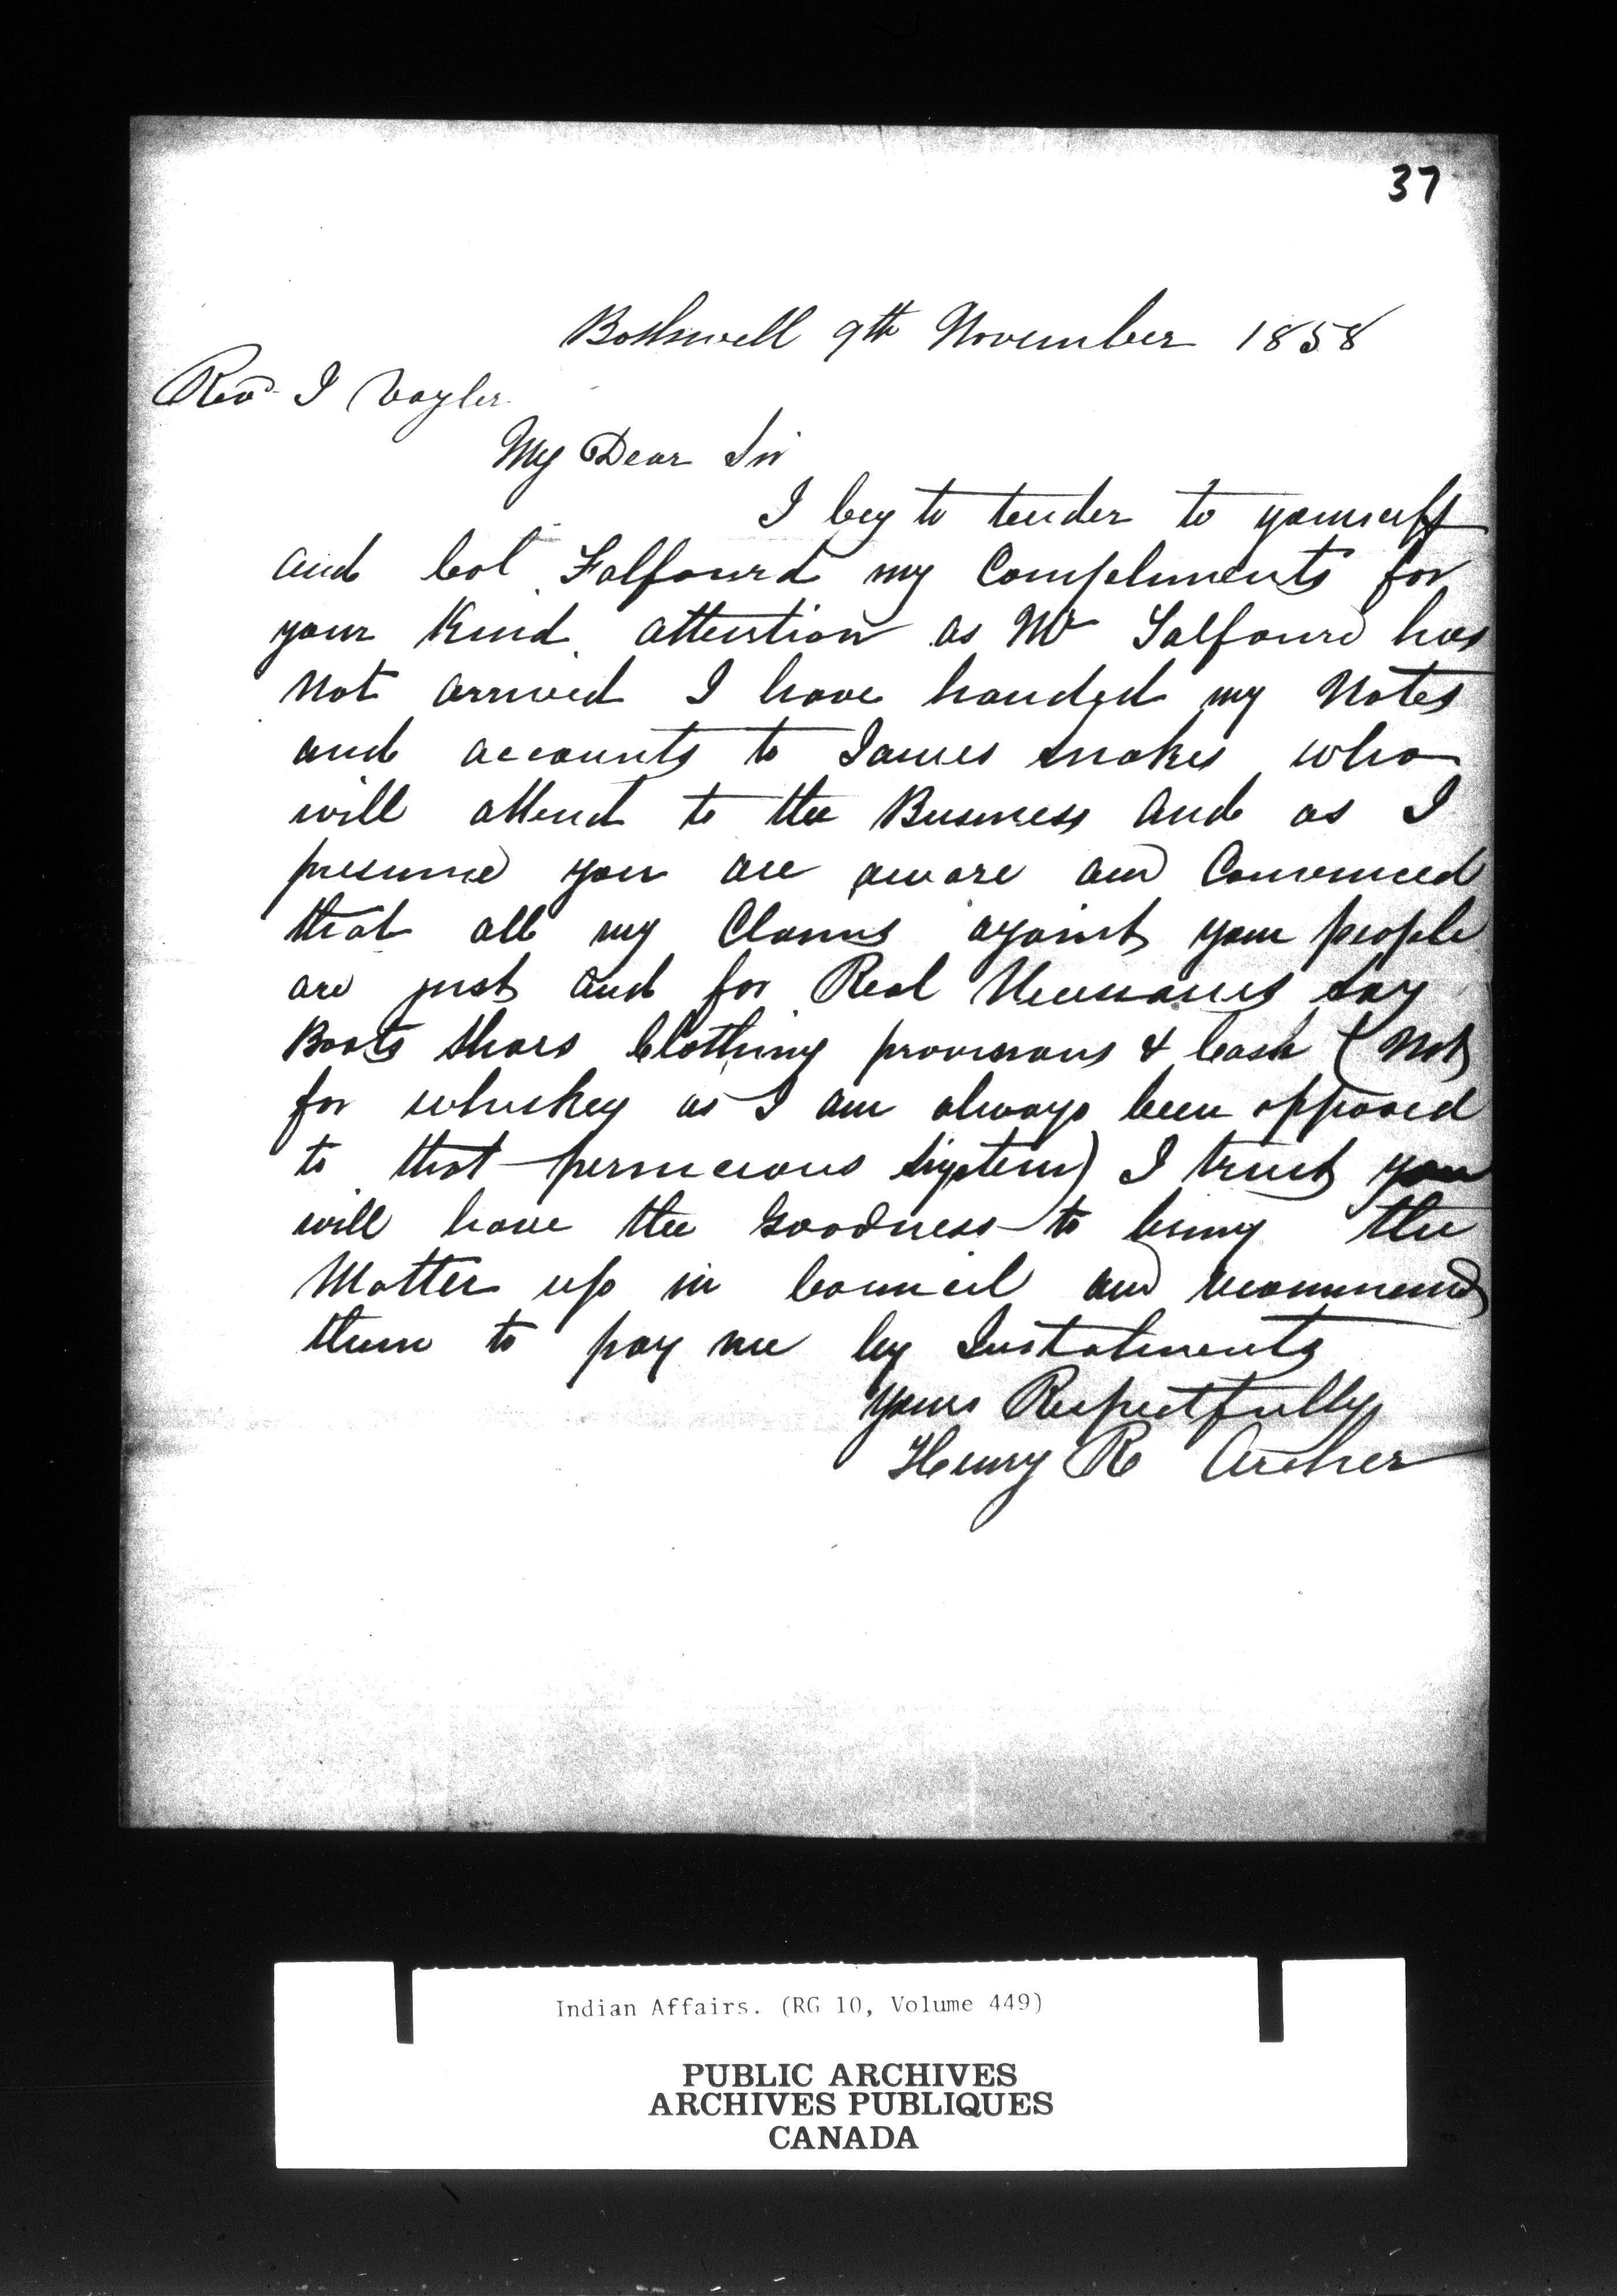 37
Bothwell 9th November 1858
Revd I Vogler
My Dear Sir
I beg to tender to yourself
and Col Talfourd my Compliments for
your Kind attention as Mr Talfourd has
not arrived I have handed my Notes
and accounts to James Snakes who
will attend to the Business and as I
presume you are aware and Convinced
that all my Claims against your people
are just and for Real Necessaries Say
Boots Shoes Clothing provisions & Cash (Not
for whiskey as I am always been opposed
to that pernicious System) I trust you
will have the Goodness to bring the
Matter up in Council and recommend
them to pay me by Instalments
Yours Respectfully
Henry R Archer
Indian Affairs. (RG 10, Volume 449)
PUBLIC ARCHIVES
ARCHIVES PUBLIQUES
CANADA